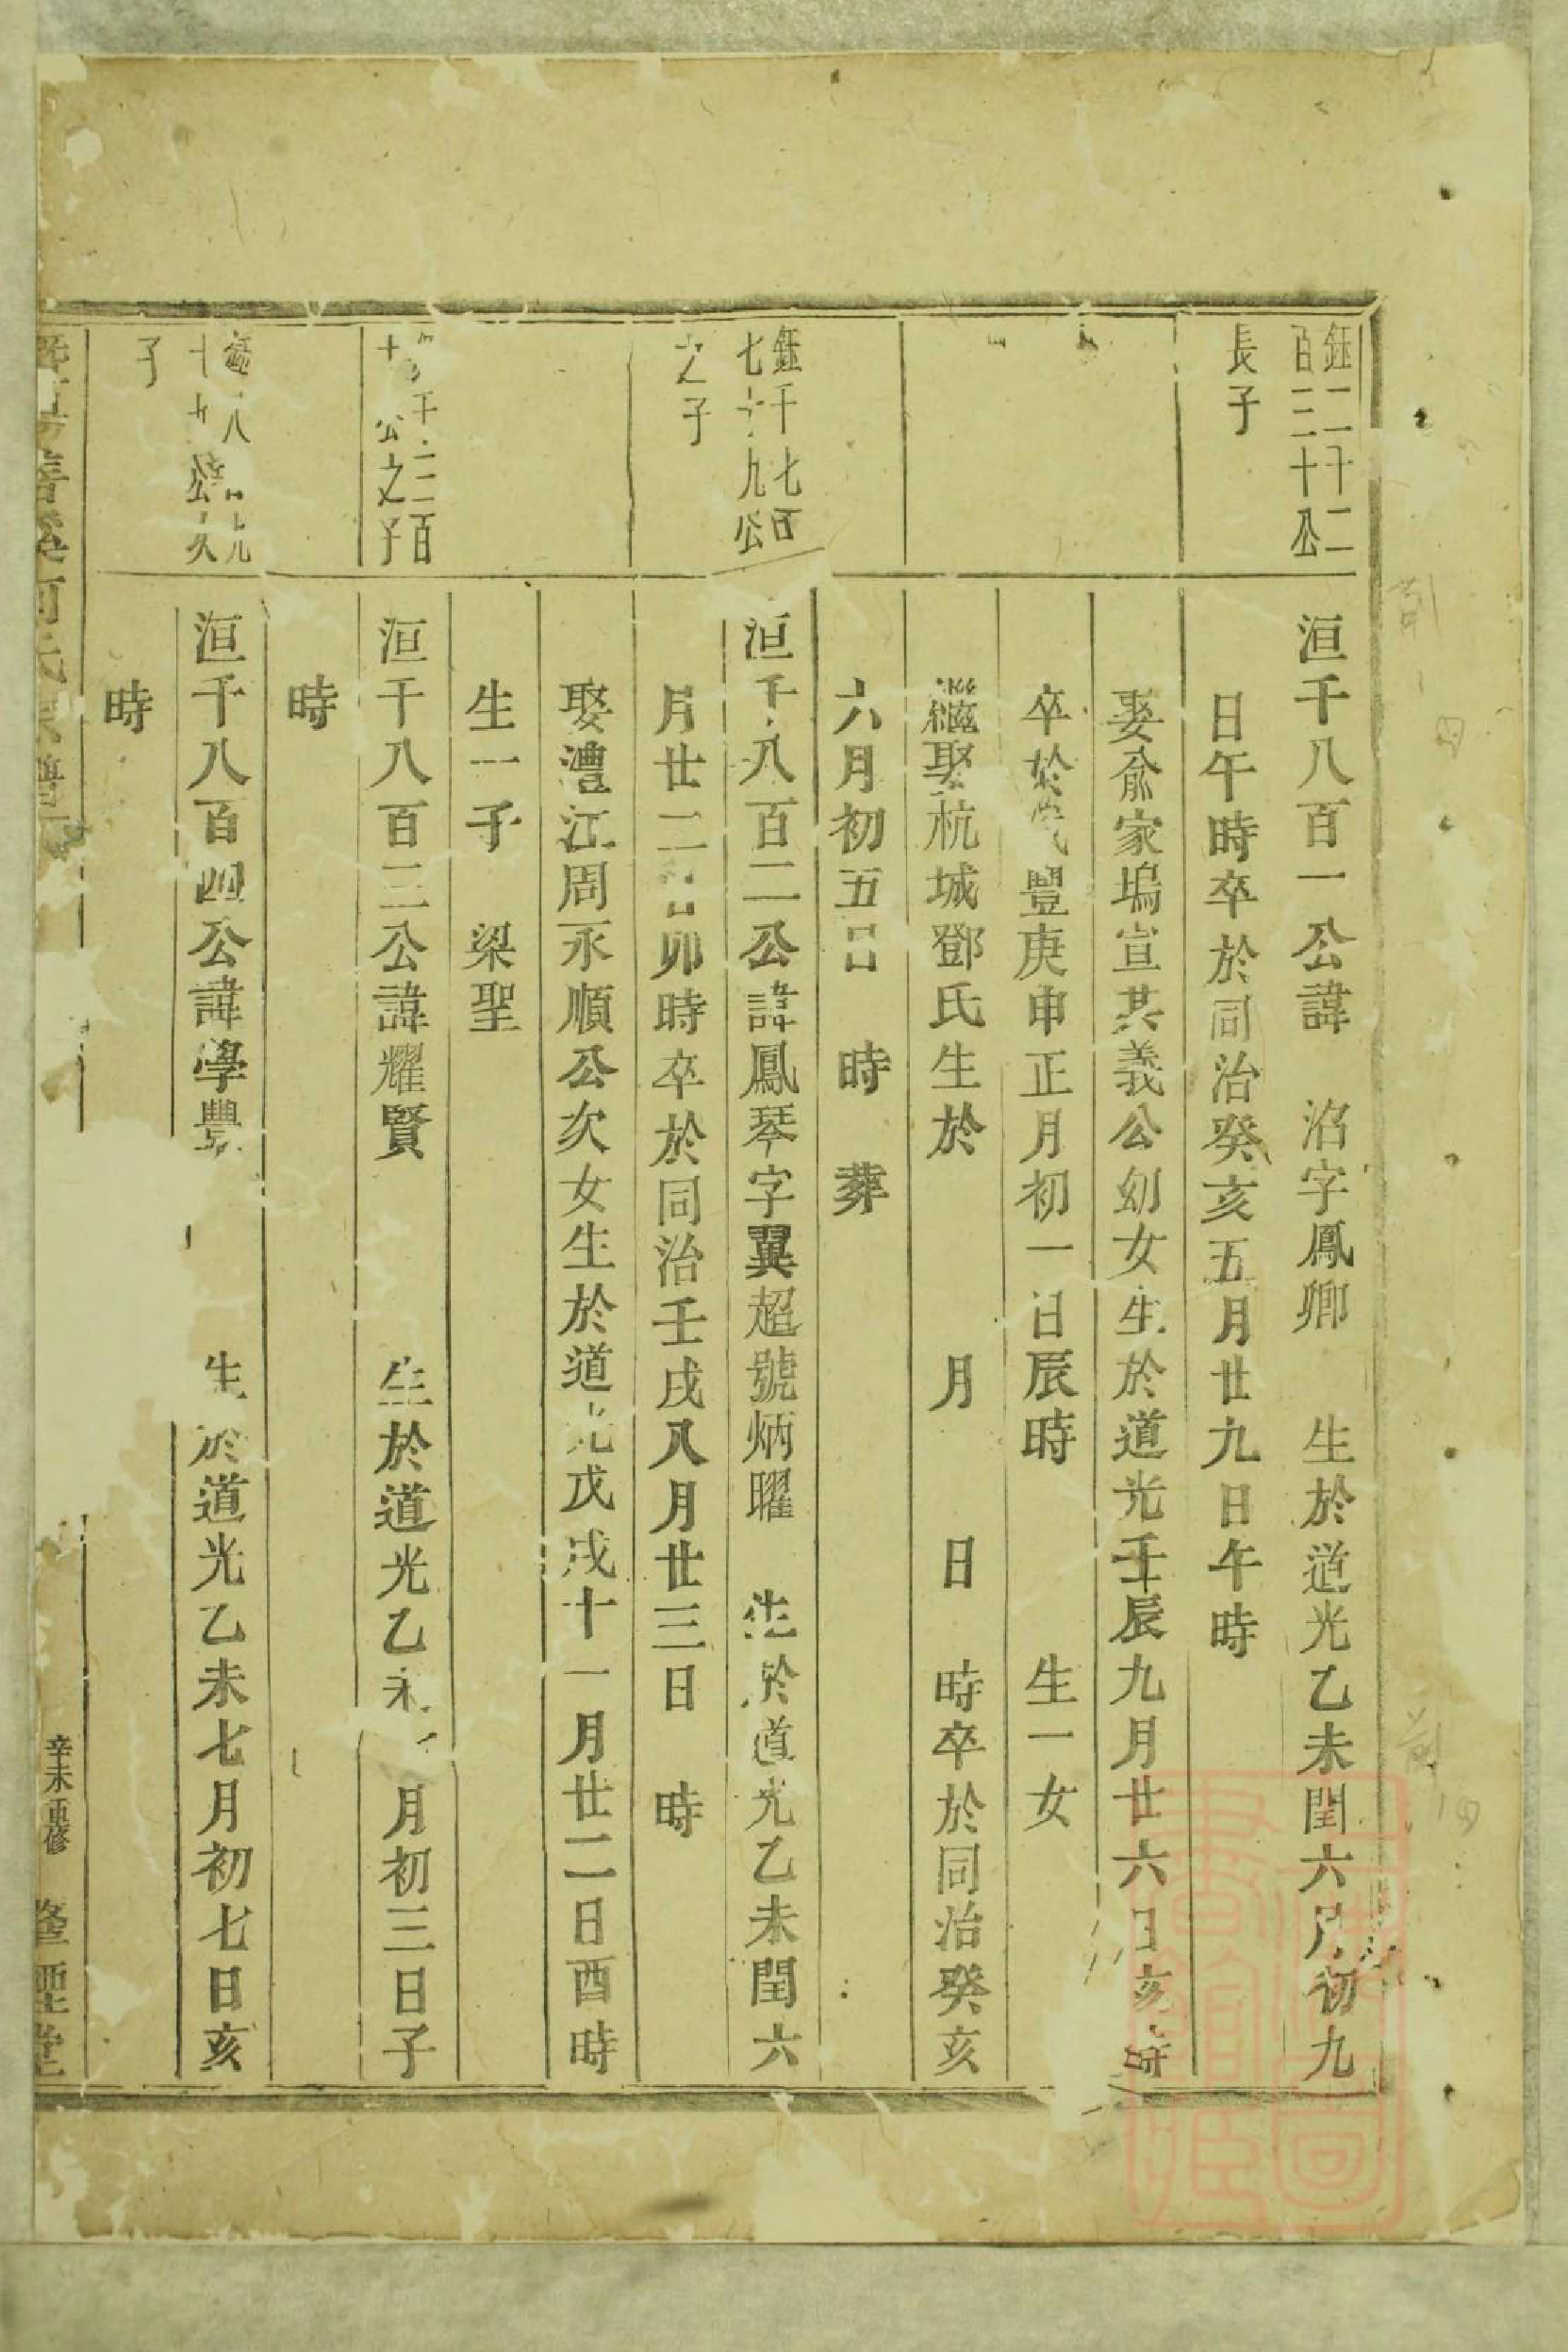 鈺二千二
百三十公
長子
洹千八百一公諱 沿字鳳卿 生於道光乙未閏六月初九
日午時卒於同治癸亥五月廿九日午時
娶兪家塢宣其義公幼女生於道光壬辰九月廿六日亥時
卒於 豐庚申正月初一日辰時 生一女
繼娶杭城鄧氏生於 月 日 時卒於同治癸亥
六月初五日 時 葬
鈺千七百
七十九公
之子
洹千八百二公諱鳳琴字翼超號炳曜 生於道光乙未閏六
月廿二日卯時卒於同治壬戌八月廿三日 時
娶澧江周永順公次女生於道光戊戌十一月廿二日酉時
生一子 梁聖
千二百
十 公之子
洹千八百三公諱耀賢 生於道光乙未 月初三日子
時
八
公次
子
洹千八百四公諱學豐 生於道光乙未七月初七日亥
時
善溪何氏宗譜
辛未重修